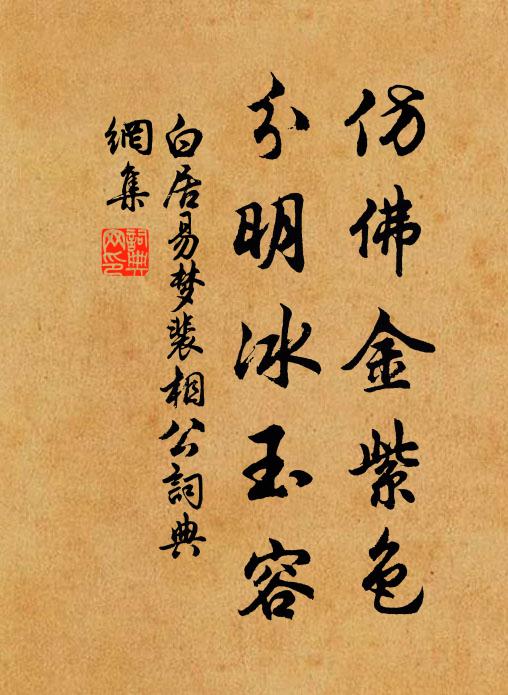 仿佛金紫色
分明冰玉容
白居易梦裴相公詞典
網集
詞典网印